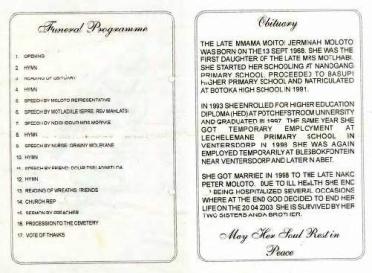 Funeral Programme
1. OPENING
2. HYMN
3. READING OF OBITUARY
4. HYMN
5. SPEECH BY MOLOTO REPRESENTATIVE
6. HYMN
7. SPEECH BY MOTLADILE
8. SPEECH BY
9. HYMN
9. SPEECH BY NURSE: GRANNY MOLIKANE
10. HYMN
11. SPEECH BY FRIEND:
12. HYMN
13. READING OF WREATHS: FRIENDS
14. CHURCH REP
15. SERMON BY PREACHER
16. PROCESSION TO THE CEMETERY
17. VOTE OF THANKS
Obituary
THE LATE MMAMA MOITOI JERMINAH MOLOTO
WAS BORN ON THE 13 SEPT 1968. SHE WAS THE
FIRST DAUGHTER OF THE LATE MRS MOTLHABI.
SHE STARTED HER SCHOOLING AT NANOGANG
PRIMARY SCHOOL, PROCEEDED TO BASUPI
HIGHER PRIMARY SCHOOL AND NATRICULATED
AT BOTOKA HIGH SCHOOL IN 1991.
IN 1993 SHE ENROLLED FOR HIGHER EDUCATION
DIPLOMA (HED) AT POTCHEFSTROOM UNIVERSITY
AND GRADUATED IN 1997. THE SAME YEAR SHE
GOT TEMPORARY EMPLOYMENT AT
LECHELEMANE PRIMARY SCHOOL IN
VENTERSDORP IN 1998 SHE WAS AGAIN
EMPLOYED TEMPORARILY AT BLESBOKFONTEIN
NEAR VENTERSDORP AND LATER IN ABET.
SHE GOT MARRIED IN 1998 TO THE LATE NAKC
PETER MOLOTO. DUE TO ILL HEALTH SHE END
BEING HOSPITALIZED SEVERAL OCCASIONS
WHERE AT THE END GOD DECIDED TO END HER
LIFE ON THE 20 04 2003 SHE IS SURVIVED BY HER
TWO SISTERS AND A BROTHER.
May Her Soul Rest in
Peace